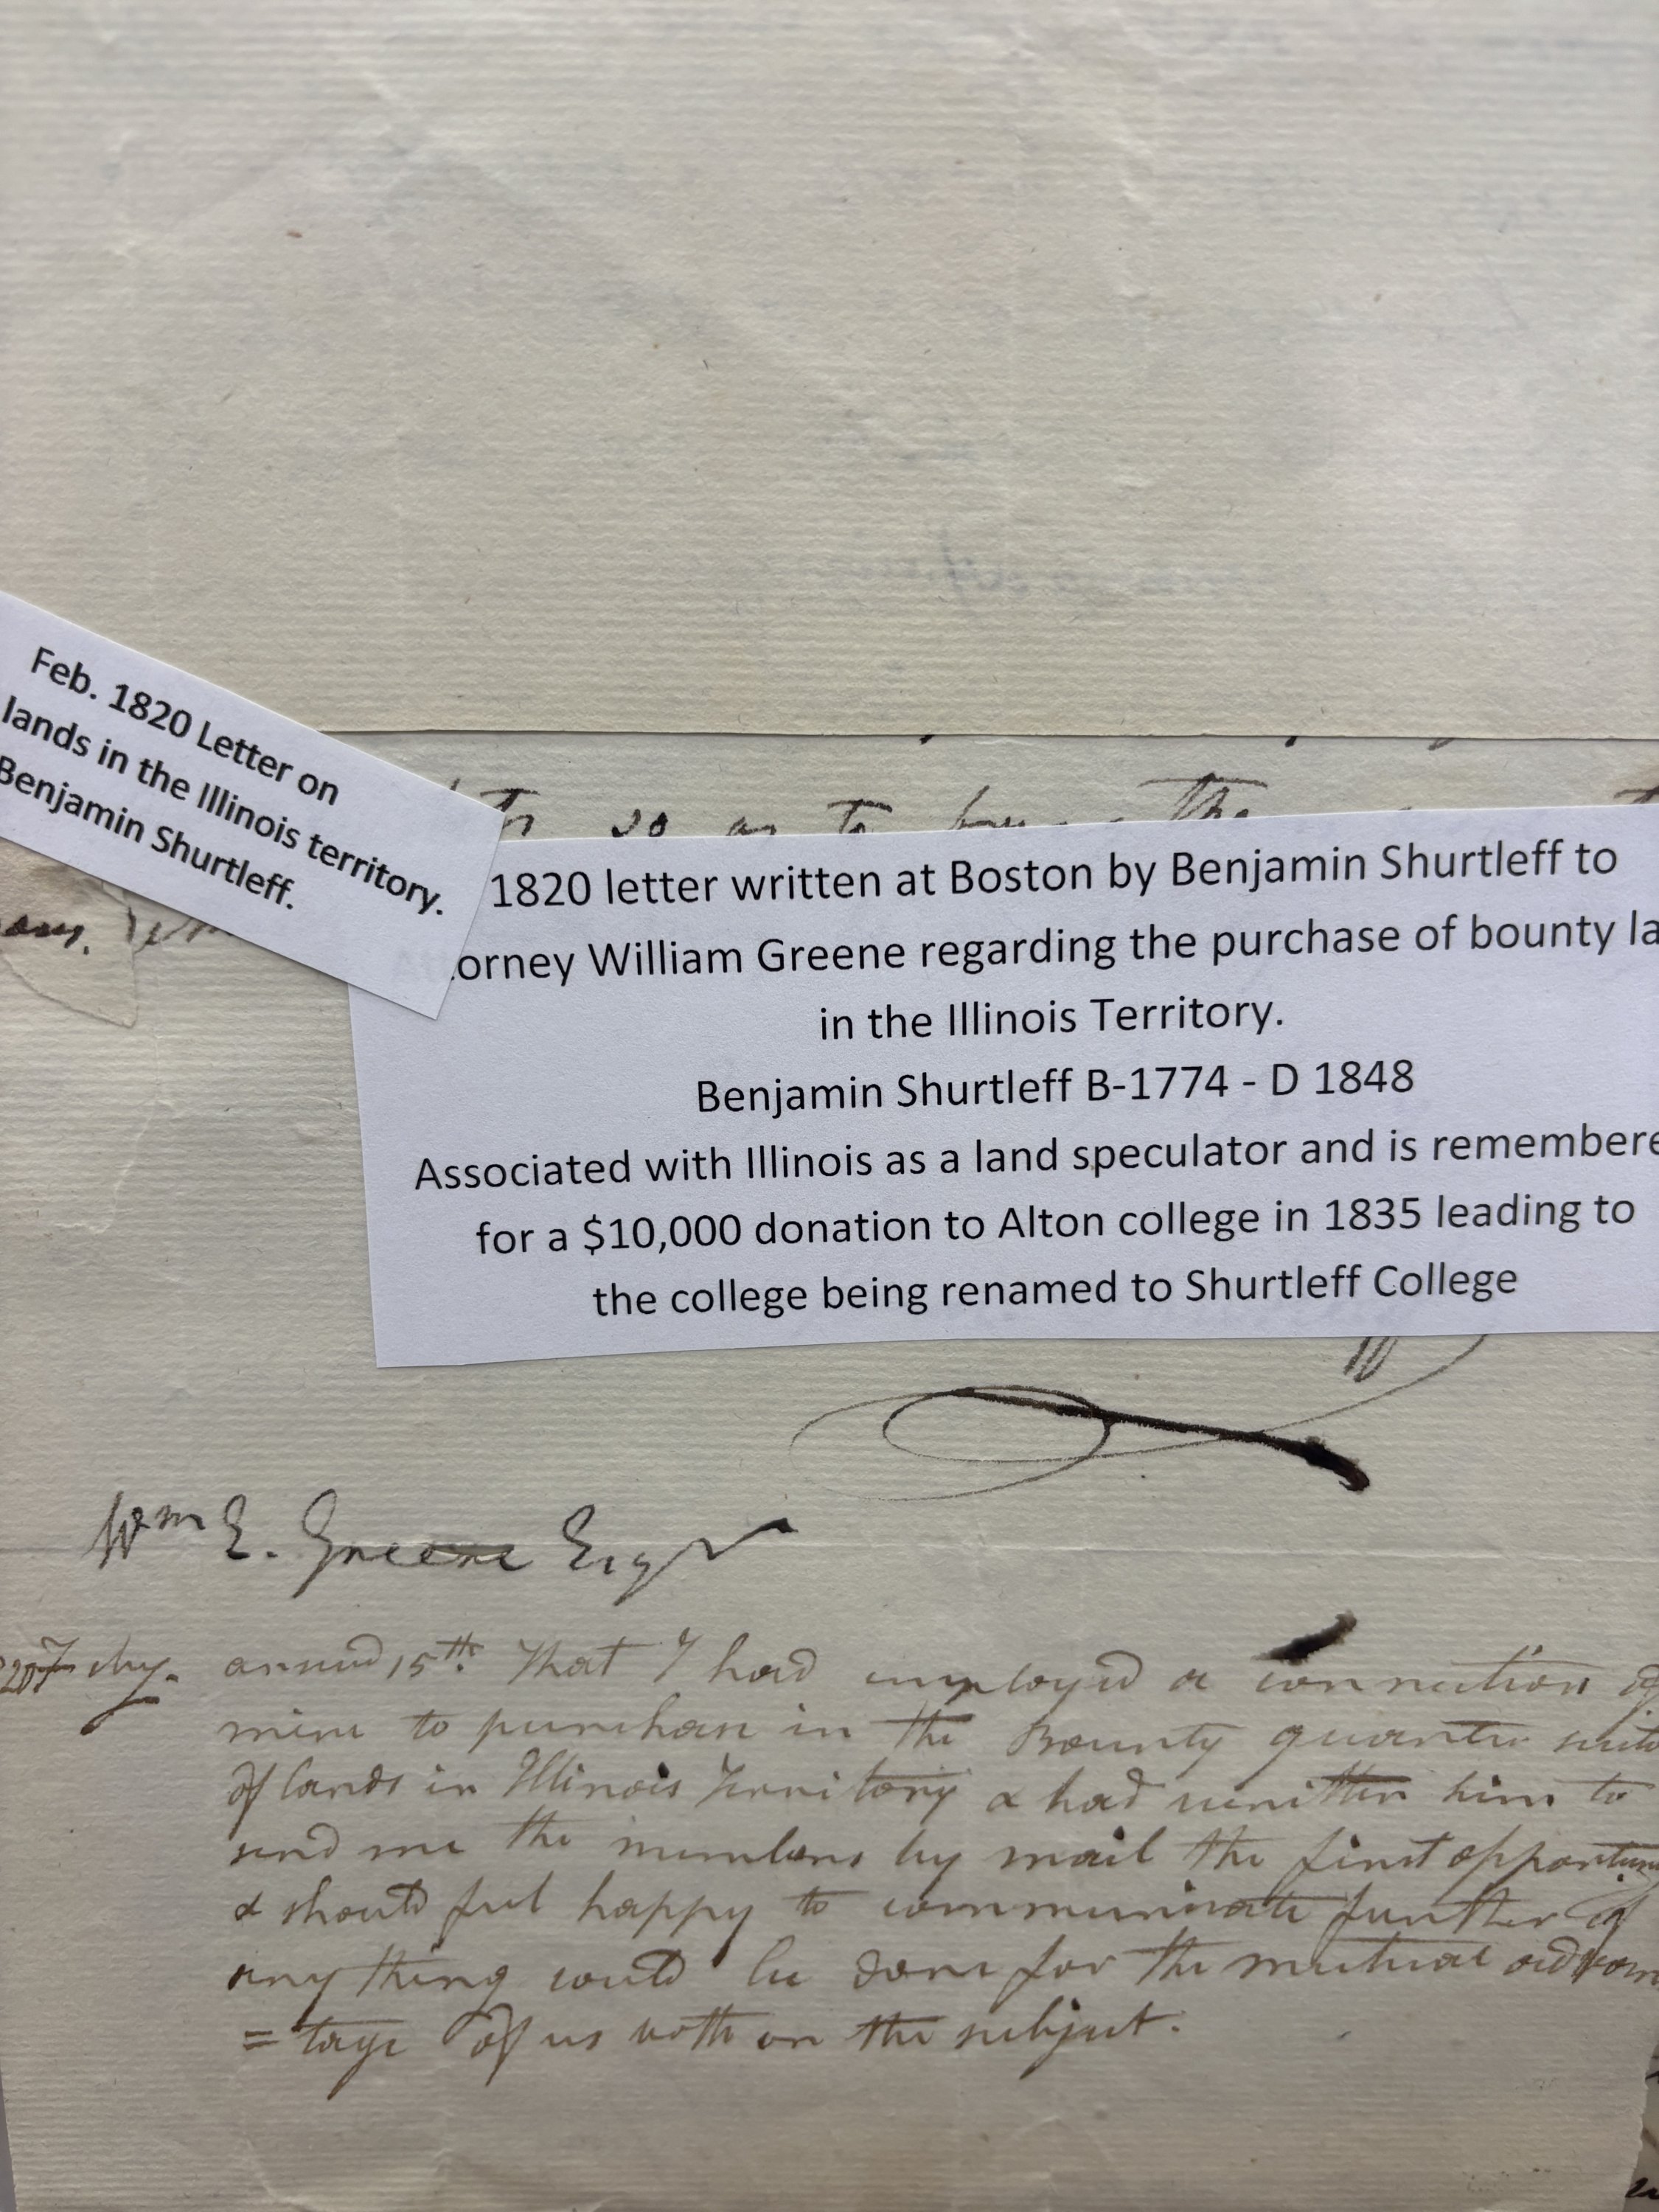 Feb. 1820 Letter on
lands in the Illinois territory.
Benjamin Shurtleff.
so as to
1820 letter written at Boston by Benjamin Shurtleff to
orney William Greene regarding the purchase of bounty la
in the Illinois Territory.
Benjamin Shurtleff B-1774 - D 1848
Associated with Illinois as a land speculator and is remembere
for a $10,000 donation to Alton college in 1835 leading to
the college being renamed to Shurtleff College
Wm E. Greene Esqr
answd 15th. That I had employed a connection of
mine to purchase in the Bounty quarter
of lands in Illinois Territory & had written him to
send me the numbers by mail the first opportun
& should feel happy to communicate further if
any thing could be done for the mutual advan
= tage of us both on the subject.